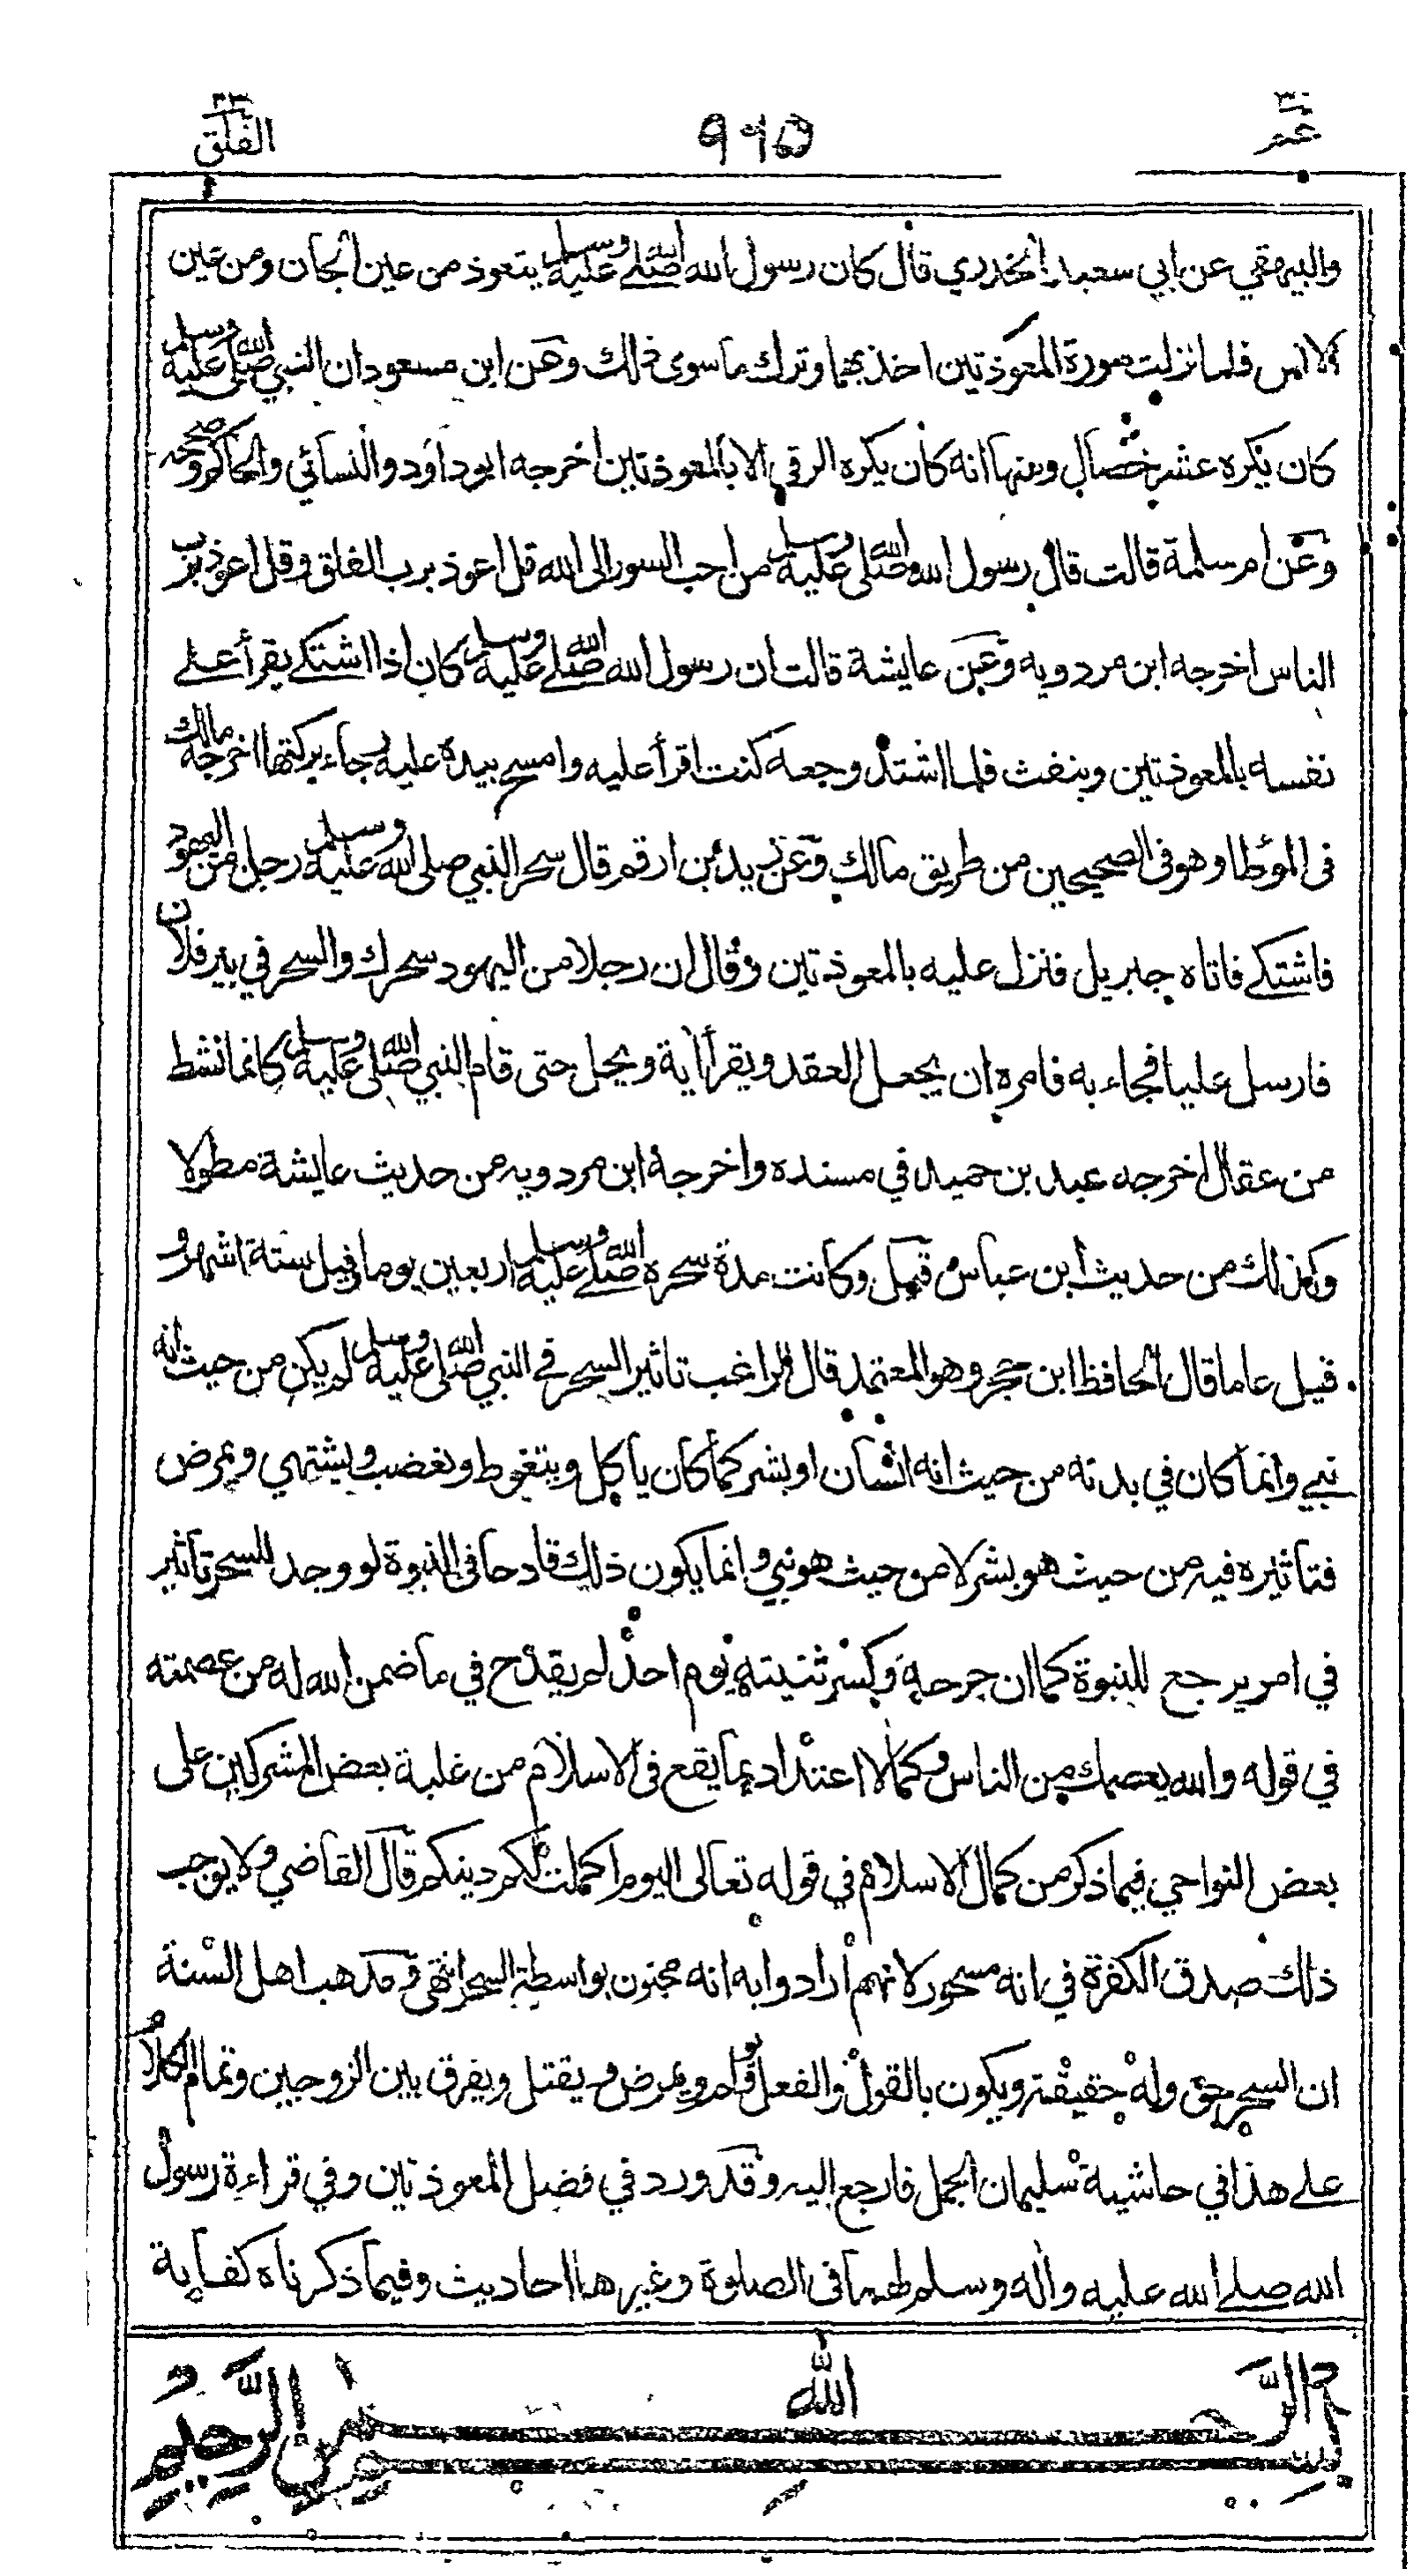 عم ٣٠
٩٩٥
الفلق ١١٣
والبيهقي عن ابي سعيد الخدري قال كان رسول الله صلى الله عليه وسلم يتعوذ من عين الجان ومن عين
الانس فلما نزلت سورة المعوذتين اخذ بهما وترك ما سوى ذلك وعن ابن مسعود ان النبي صلى الله عليه وسلم
كان يكره عشر خصال ومنها انه كان يكره الرقى الا بالمعوذتين اخرجه ابو داود والنسائي والحاكم وصححه
وعن ام سلمة قالت قال رسول الله صلى الله عليه وسلم من احب السور الى الله قل اعوذ برب الفلق وقل اعوذ برب
الناس اخرجه ابن مردويه وعن عايشة قالت ان رسول الله صلى الله عليه وسلم كان اذا اشتكى يقرأ على
نفسه بالمعوذتين وينفث فلما اشتد وجعه كنت اقرأ عليه وامسح بيده عليه رجاء بركتها اخرجه مالك
فى الموطا وهو فى الصحيحين من طريق مالك وعن زيد بن ارقم قال سحر النبي صلى الله عليه وسلم رجل من اليهود
فاشتكى فاتاه جبريل فنزل عليه بالمعوذتين وقال ان رجلا من اليهود سحرك والسحر في بير فلان
فارسل عليا فجاء به فامره ان يحعل العقد ويقرأ اية ويحل حتى قام النبي صلى الله عليه وسلم كانما نشط
من عقال اخرجه عبد بن حميد في مسنده واخرجه ابن مردويه من حديث عايشة مطولا
وكذلك من حديث ابن عباس قيل وكانت مدة سحره صلى الله عليه وسلم اربعين يوما وقيل ستة اشهر و
قيل عاما قال الحافظ ابن حجر وهو المعتمد قال الراغب تاثير السحر في النبي صلى الله عليه وسلم لم يكن من حيث انه
نبي وانما كان في بدنه من حيث انه انسان او بشر كما كان ياكل ويتغوط ويغضب ويشتهي ويمرض
فتاثيره فيه من حيث هو بشر لا من حيث هو نبي وانما يكون ذلك قادحا فى النبوة لو وجد للسحر تاثير
في امر يرجع للنبوة كما ان جرحه وكسر ثنيته يوم احد لم يقدح في ما ضمن الله له من عصمته
في قوله والله يعصمك من الناس وكما لا اعتداد بما يقع فى الاسلام من غلبة بعض المشركين على
بعض النواحي فيما ذكر من كمال الاسلام في قوله تعالى اليوم اكملت لكم دينكم قال القاضي ولا يوجب
ذلك صدق الكفرة في انه مسحور لانهم ارادوا به انه مجنون بواسطة السحر انتهى ومذهب اهل السنة
ان السحر حق وله حقيقة ويكون بالقول والفعل ويولم ويمرض ويقتل ويفرق بين الزوجين وتمام الكلام
على هذا في حاشية سليمان الجمل فارجع اليه وقد ورد في فضل المعوذتين وفي قراءة رسول
الله صلى الله عليه واله وسلم لهما فى الصلوة وغيرها احاديث وفيما ذكرناه كفاية
بسم الله الرحمن الرحيم